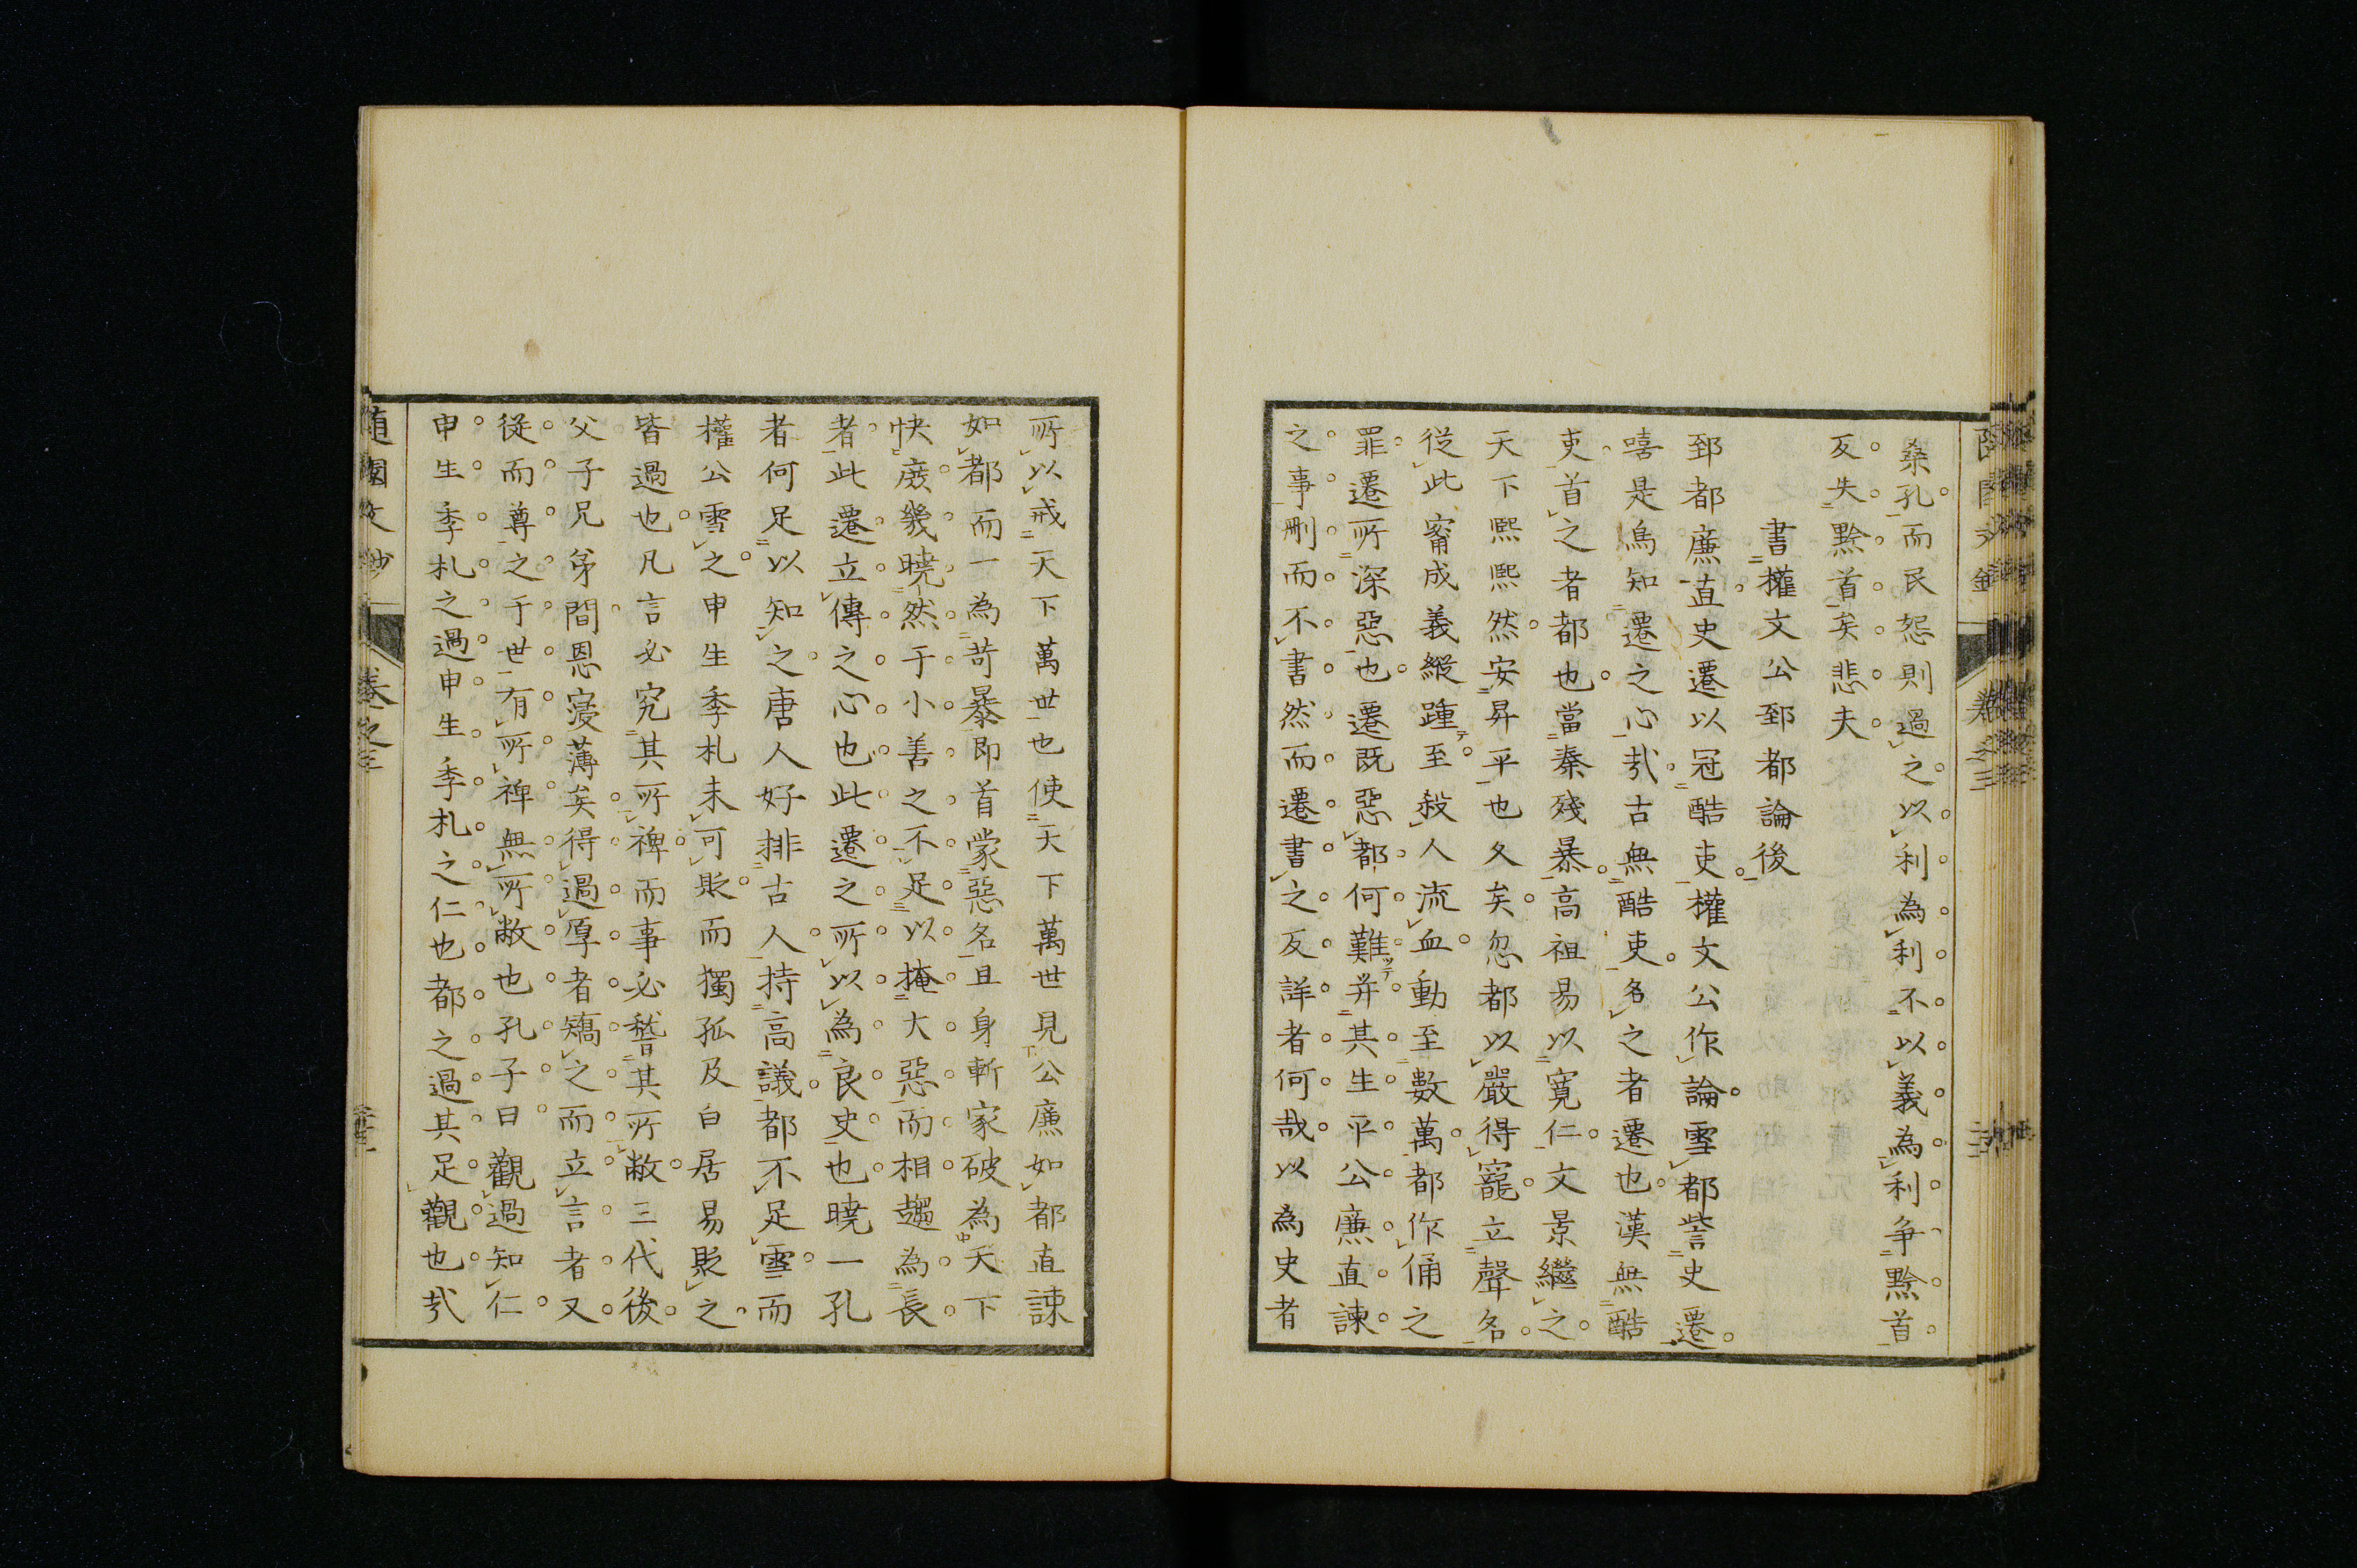 桑孔而民怨則過之以利為利不以義為利争黔首
反失黔首矣悲夫
書權文公郅都論後
郅都廉直史遷以冠酷吏權文公作論雪都訾史遷
嘻是烏知遷之心哉古無酷吏名之者遷也漢無酷
吏首之者都也當秦殘暴高祖易以寬仁文景繼之
天下熙熙然安昇平也久矣忽都以嚴得寵立聲名
從此甯成義縱踵至殺人流血動至數萬都作俑之
罪遷所深惡也遷既惡都何難并其生平公廉直諫
之事刪而不書然而遷書之反詳者何哉以為史者
所以戒天下萬世也使天下萬世見公廉如都直諫
如都而一為苛暴即首蒙惡名且身斬家破為天下
快庶幾曉然于小善之不足以掩大惡而相趨為長
者此遷立傳之心也此遷之所以為良史也曉一孔
者何足以知之唐人好排古人持高議都不足雪而
權公雪之申生季札未可貶而獨孤及白居易貶之
皆過也凡言必究其所裨而事必稽其所敝三代後
父子兄弟間恩寖薄矣得過厚者矯之而立言者又
從而尊之于世有所裨無所敝也孔子曰觀過知仁
申生季札之過申生季札之仁也都之過其足觀也哉
随園文鈔 卷之三